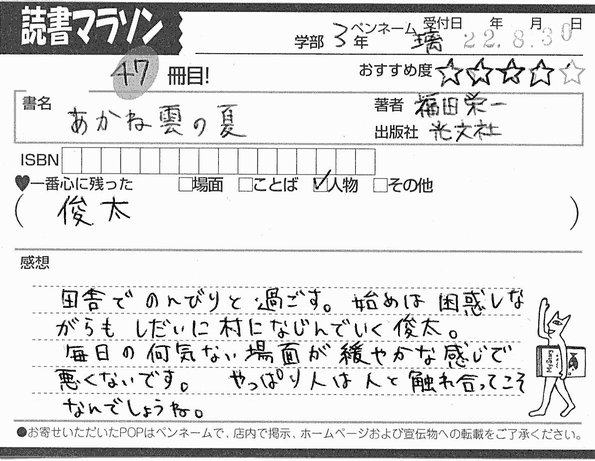 読書マラソン
学部 3年 ペンネーム 璃 受付日 年 月 日
22.8.30
47 冊目!
おすすめ度 ☆☆☆☆☆
書名 あかね雲の夏
著者 福田栄一
出版社 光文社
ISBN
♥一番心に残った □場面 □ことば ☑人物 □その他
( 俊太 )
感想
田舎でのんびりと過ごす。始めは困惑しな
がらもしだいに村になじんでいく俊太。
毎日の何気ない場面が緩やかな感じで
悪くないです。 やっぱり人は人と触れ合ってこそ
なんでしょうね。
●お寄せいただいたPOPはペンネームで、店内で掲示、ホームページおよび宣伝物への転載をご了承ください。